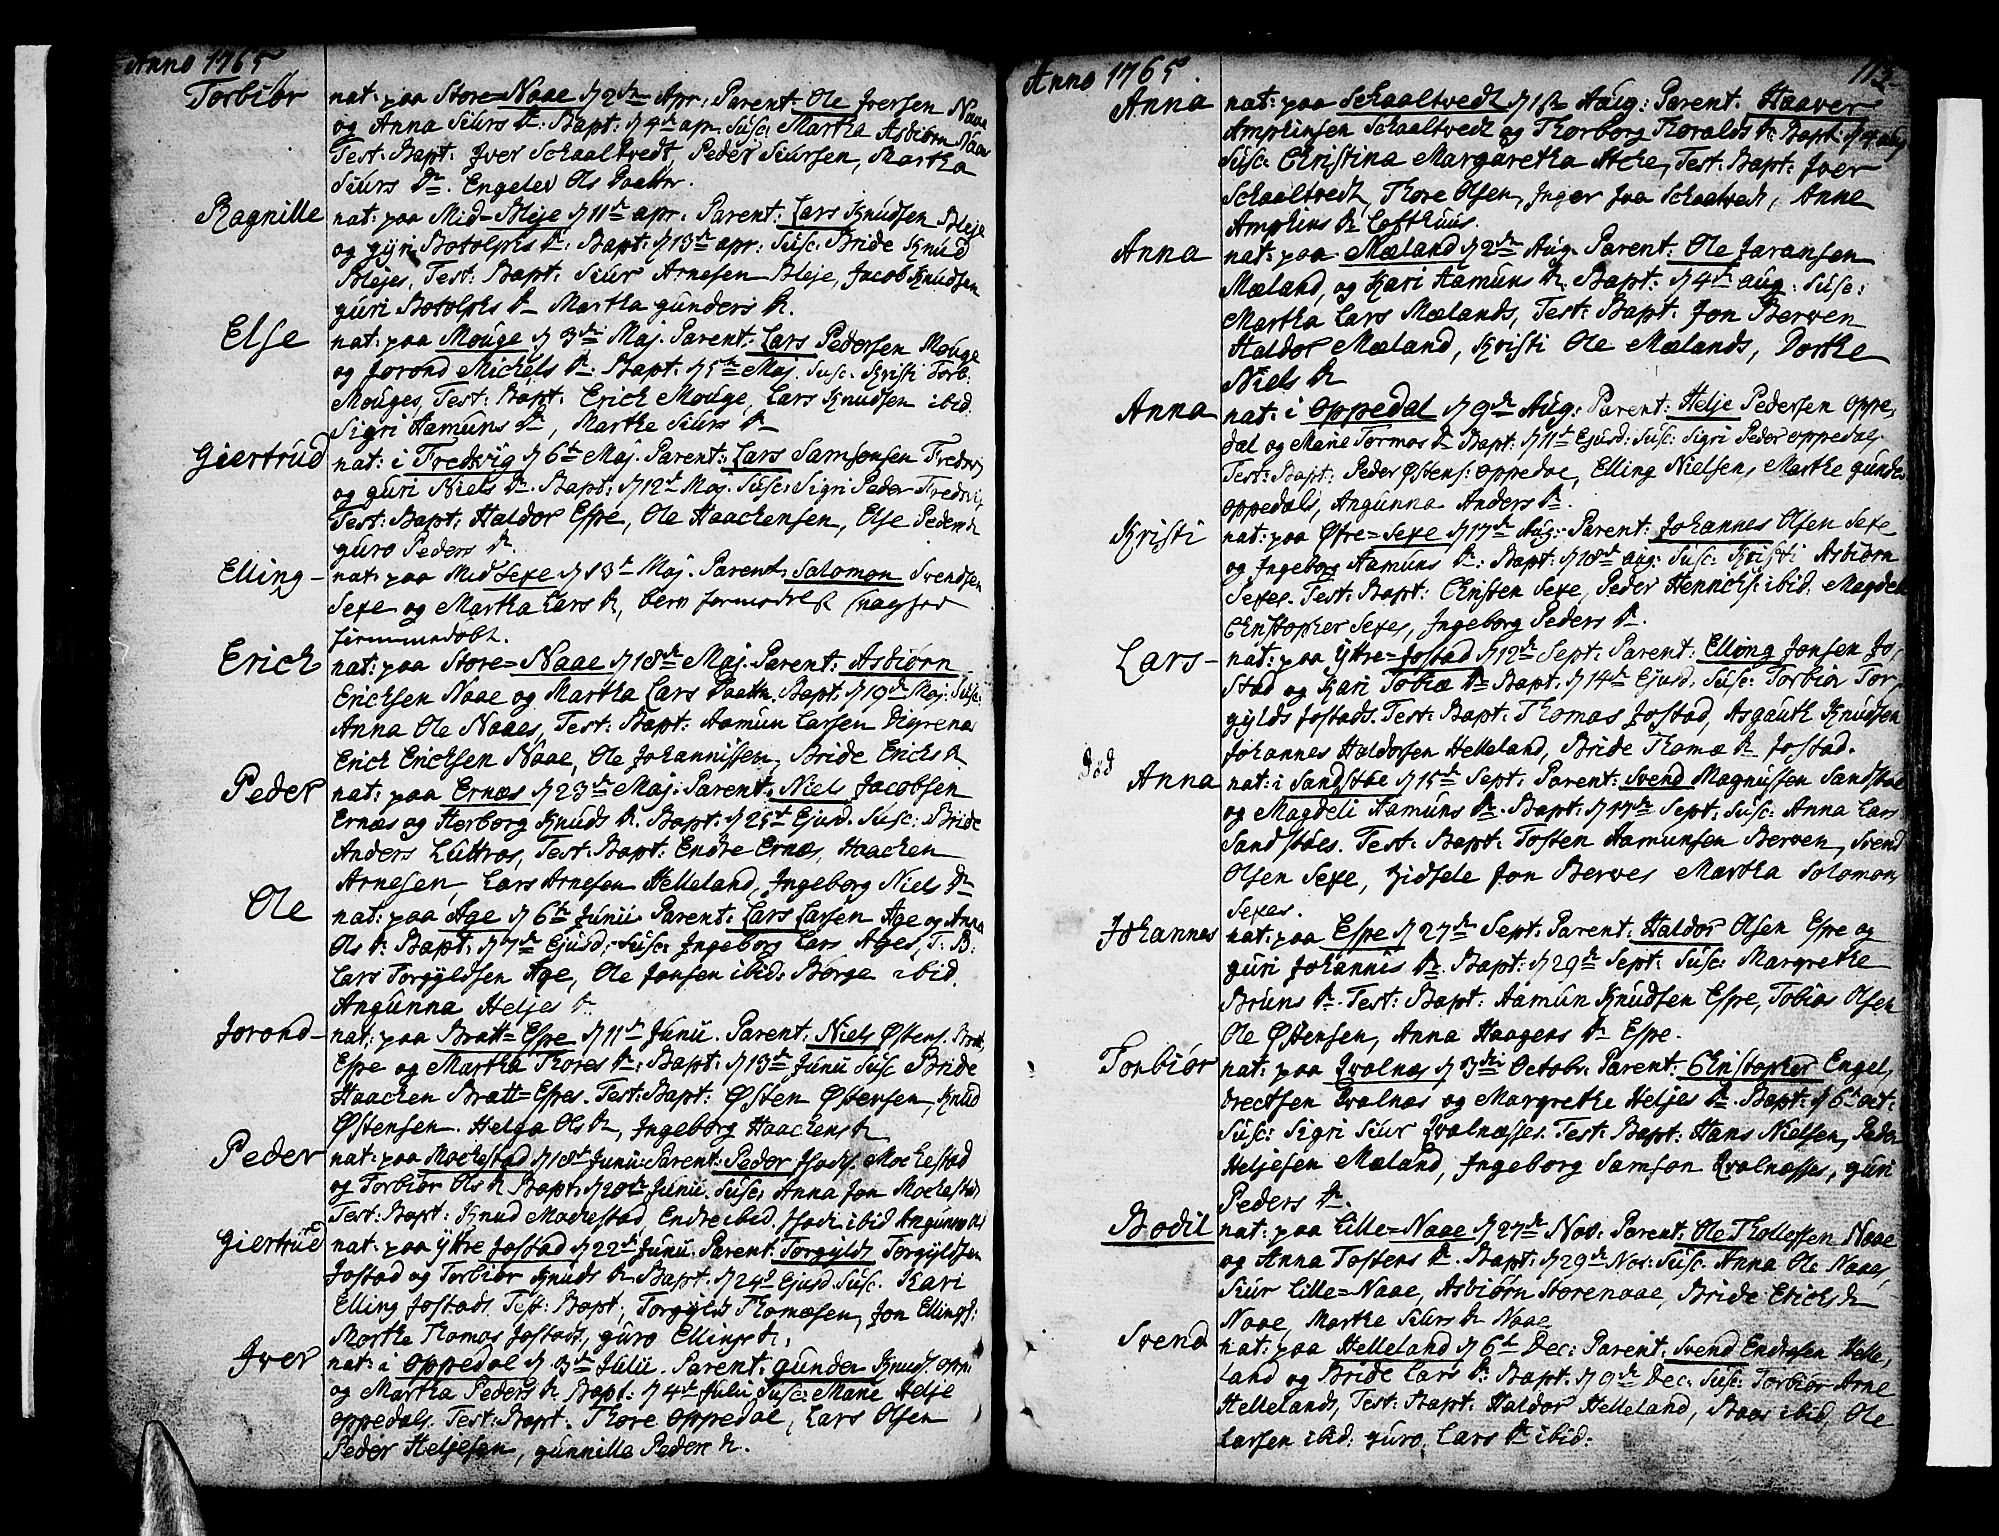 Anno 1765
Torbiør nat: paa Store=Naae d 2den Apr: Parent: Ole Iversen Naae
og Anna Siurs Dr: Bapt: d 4de apr. Susc: Martha Asbiørn Naaes
Test: Bapt: Iver Schaaltvedt, Peder Siursen, Martha
Siurs Dr. Engelev Ols Daatter.
Ragnille nat: paa Mid-Bleje d 11te apr. Parent: Lars Knudsen Bleje
og Gyri Botolphs Dr: Bapt: d 13de apr: Susc: Bride Knud
Blejes, Test: Bapt: Siur Arnesen Bleje, Jacob Knudsen
Guri Botolphs Dr Martha Gunders Dr.
Else nat: paa Mouge d 3die Maj. Parent: Lars Pedersen Mouge
og Jorond Michels Dr: Bapt: d 5te Maj. Susc. Kristi Torb:
Mouges, Test: Bapt: Erich Mouge, Lars Knudsen ibid.
Sigri Hamuns Dr, Marthe Siurs Dr
Giertrud nat: i Fredvig d 6te Maj. Parent: Lars Samsonsen Fredvig
og Guri Niels Dr. Bapt: d 12te Maj. Susc: Sigri Peder Fredvig
Test: Bapt: Haldor Espe, Ole Haachensen, Else Peders Dr
Guro Peders Dr.
Elling - nat: paa Mid Sexe d 13de Maj. Parent: Salomon Svendsen
Sexe og Martha Lars Dr,
hiemmedøbt.
Erich nat: paa Store=Naae d 18de Maj. Parent: Asbiørn
Erichsen Naae og Martha Lars Daatter. Bapt: d 19de Maj: Susc:
Anna Ole Naaes, Test: Bapt: Aamun Larsen Digrenes
Erich Erichsen Naae, Ole Johannissen, Bride Erichs Dr
Peder nat: paa Ernæs d 23de Maj: Parent: Niels Jacobsen
Ernæs og Herborg Knuds Dr. Bapt: d 25te Ejusd. Susc: Bride
Anders Luttros, Test: Bapt: Endre Ernæs, Haachen
Arnesen, Lars Arnesen Helleland, Ingeborg Niels Dr
Ole nat: paa Age d 6te Junii. Parent: Lars Larsen Age og Anna
Ols Dr. Bapt: d 7de Ejusd. Susc: Ingeborg Lars Ages, T: B:
Lars Torgyldsen Age, Ole Jonsen ibid: Børge ibid.
Angunna Heljes Dr.
Jorond - nat: paa Bratt=Espe d 11te Junii. Parent: Niels Østens. Bratt
Espe og Martha Thores Dr: Bapt: d 13de Junii Susc Bride
Haachen Bratt=Espes. Test: Bapt: Østen Østensen, Knud
Østensen. Helga Ols Dr, Ingeborg Haachens Dr
Peder nat: paa Mochestad d 18de Junii: Parent: Peder Mochestad
og Torbiør Ols Dr Bapt: d 20de Junii. Susc: Anna Jon Mochestad
Test: Bapt: Knud Mochestad, Endre ibid. ibid Angunna Ols
Giertrud nat: paa Yttre Jostad d 22de Junii. Parent: Torgyld Torgyldsen
Jostad og Torbiør Knuds Dr. Bapt: d 24de Ejusd. Susc: Kari
Elling Jostads. Test: Bapt: Torgyld Thomæsen, Jon Ellings:
Marthe Thomas Jostads, Guro Ellings Dr:
Iver nat: i Oppedal d 3die Julii. Parent: Gunder Knuds. opp:
og Martha Peders Dr Bapt: d 4de Julii Susc: Mane Helje
Oppedals. Test: Bapt: Thore Oppedal, Lars Olsen
Peder Heljesen, Gunnille Peders Dr.
Anno 1765
113
Anna nat: paa Schaaltvedt d 1ste Aug: Parent: Haaver
Amphinsen Schaaltvedt og Thorborg Thoralds Dr Bapt: d 4 aug
Susc: Christina Margaretha Atche, Test: Bapt: Iver
Schaaltvedt, Thore Olsen, Inger Schaaltvedt, Anne
Amphins Dr Lofthuus.
Anna nat: paa Mæland d 2den Aug. Parent: Ole Jaransen
Mæland, og Kari Hamuns Dr Bapt: d 4de aug: Susc:
Martha Lars Mælands, Test: Bapt: Jon Berven
Haldor Mæland, Kristi Ole Mælands, Dorthe
Niels Dr
Anna nat: i Oppedal d 9de Aug: Parent: Helje Pedersen Oppe,
dal og Mane Tormos Dr Bapt: d 11te Ejusd: Susc: Sigri Peder Oppedals.
Test: Bapt: Peder Østens: Oppedal, Elling Nielsen, Marthe Gunder
Oppedals, Angunna Anders Dr.
Kristi nat: paa Øfre=Sexe d 17de Aug: Parent: Johannes Olsen Sexe
og Ingeborg Aamuns Dr: Bapt: d 18de aug: Susc: Kristi Asbiørn
Sexes. Test: Bapt: Christen Sexe, Peder Hennichs: ibid. Magdeli
Christopher Sexes, Ingeborg Peders Dr.
Lars - nat: paa Yttre=Jostad d 12te Sept: Parent: Elling Jonsen Jo,
stad og Kari Tobiæ Dr Bapt: d 14de Ejusd: Susc: Torbiør Tor,
gylds Jostads. Test: Bapt: Thomas Jostad, Asgauth Knudsen
Johannes Haldorsen Helleland, Bride Thomæ Dr Jostad.
død
Anna nat: i Sandstøe d 15de Sept: Parent: Svend Magnussen Sandstøe
og Magdeli Hamuns Dr. Bapt: d 17de Sept: Susc: Anna Lars
Sandstøes. Test: Bapt: Tosten Aamunsen Berven, Svend
Olsen Sexe, Zidsele Jon Berves Martha Solomon
Sexes.
Johannes nat: paa Espe d 27de Sept: Parent: Haldor Olsen Espe og
Guri Johannis Dr. Bapt: d 29de Sept: Susc: Margrethe
Bruns Dr. Test: Bapt: Aamun Knudsen Espe, Tobias Olsen
Ole Østensen, Anna Haagens Dr Espe.
Torbiør nat: paa Qvalnæs d 3die Octobr: Parent: Christopher Engel,
brectsen Qvalnæs og Margrethe Heljes Dr. Bapt: d 6te oct:
Susc: Sigri Siur Qvalnæsses. Test: Bapt: Hans Nielsen, Peder
Heljesen Mæland, Ingeborg Samson Qvalnæsses, Guri
Peders Dr.
Bodil nat: paa Lille=Naae d 27de Nov: Parent: Ole Thollessen Naae
og Anna Tostens Dr. Bapt: d 29de Nov: Susc: Anna Ole Naaes,
Siur Lille=Naae, Asbiørn Storenaae, Bride Erichs Dr
Naae Marthe Siurs Dr Naae
Svend nat: paa Helleland d 6te Dec: Parent: Svend Endresen Helle,
land og Bride Lars Dr. Bapt: d 9de Dec: Susc: Torbiør Arne
Hellelands, Test: Bapt: Haldor Helleland, Baar ibid, Ole
Larsen ibid: Guro Lars Dr ibid: